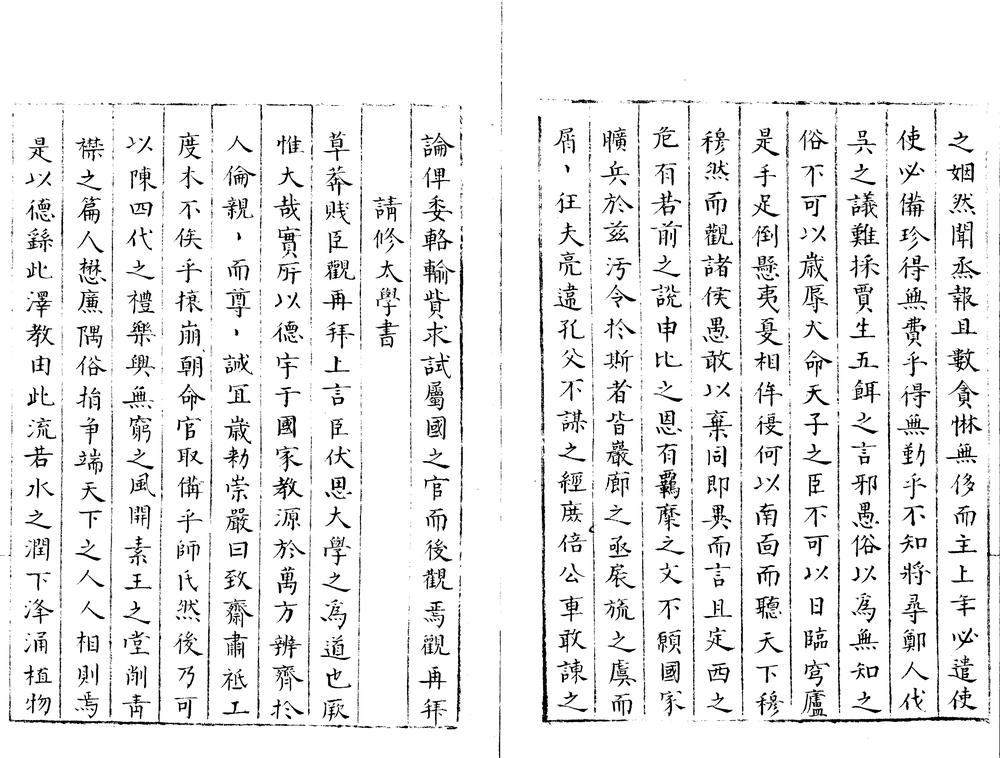 之姻然聞烝報且數貪惏無侈而主上年必遣使
使必備珍得無費乎得無動乎不知將尋鄭人伐
吳之議難採賈生五餌之言邪愚俗以為無知之
俗不可以歲辱大命天子之臣不可以日臨穹廬
是手足倒懸夷夏相侔復何以南面而聽天下穆
穆然而觀諸侯愚敢以棄同即異而言且定西之
危有若前之說申比之恩有羈縻之文不願國家
曠兵於茲汚令於斯者皆巖廊之亟扆旒之虞而
屑丶狂夫亮違孔父不謀之經庶倍公車敢諫之
論俾委輅輸貲求試屬國之官而後觀焉觀再拜
請修太學書
草莽賤臣觀再拜上言臣伏思大學之為道也厥
惟大哉實所以德宇于國家教源於萬方辨齊於
人倫親丶而尊丶誠宜歲勑崇嚴曰致齋肅祗工
度木不俟乎榱崩朝命官取備乎師氏然後乃可
以陳四代之禮樂興無窮之風開素王之堂削青
襟之篇人懋廉隅俗捐争端天下之人人相則焉
是以德繇此澤教由此流若水之潤下洚涌植物